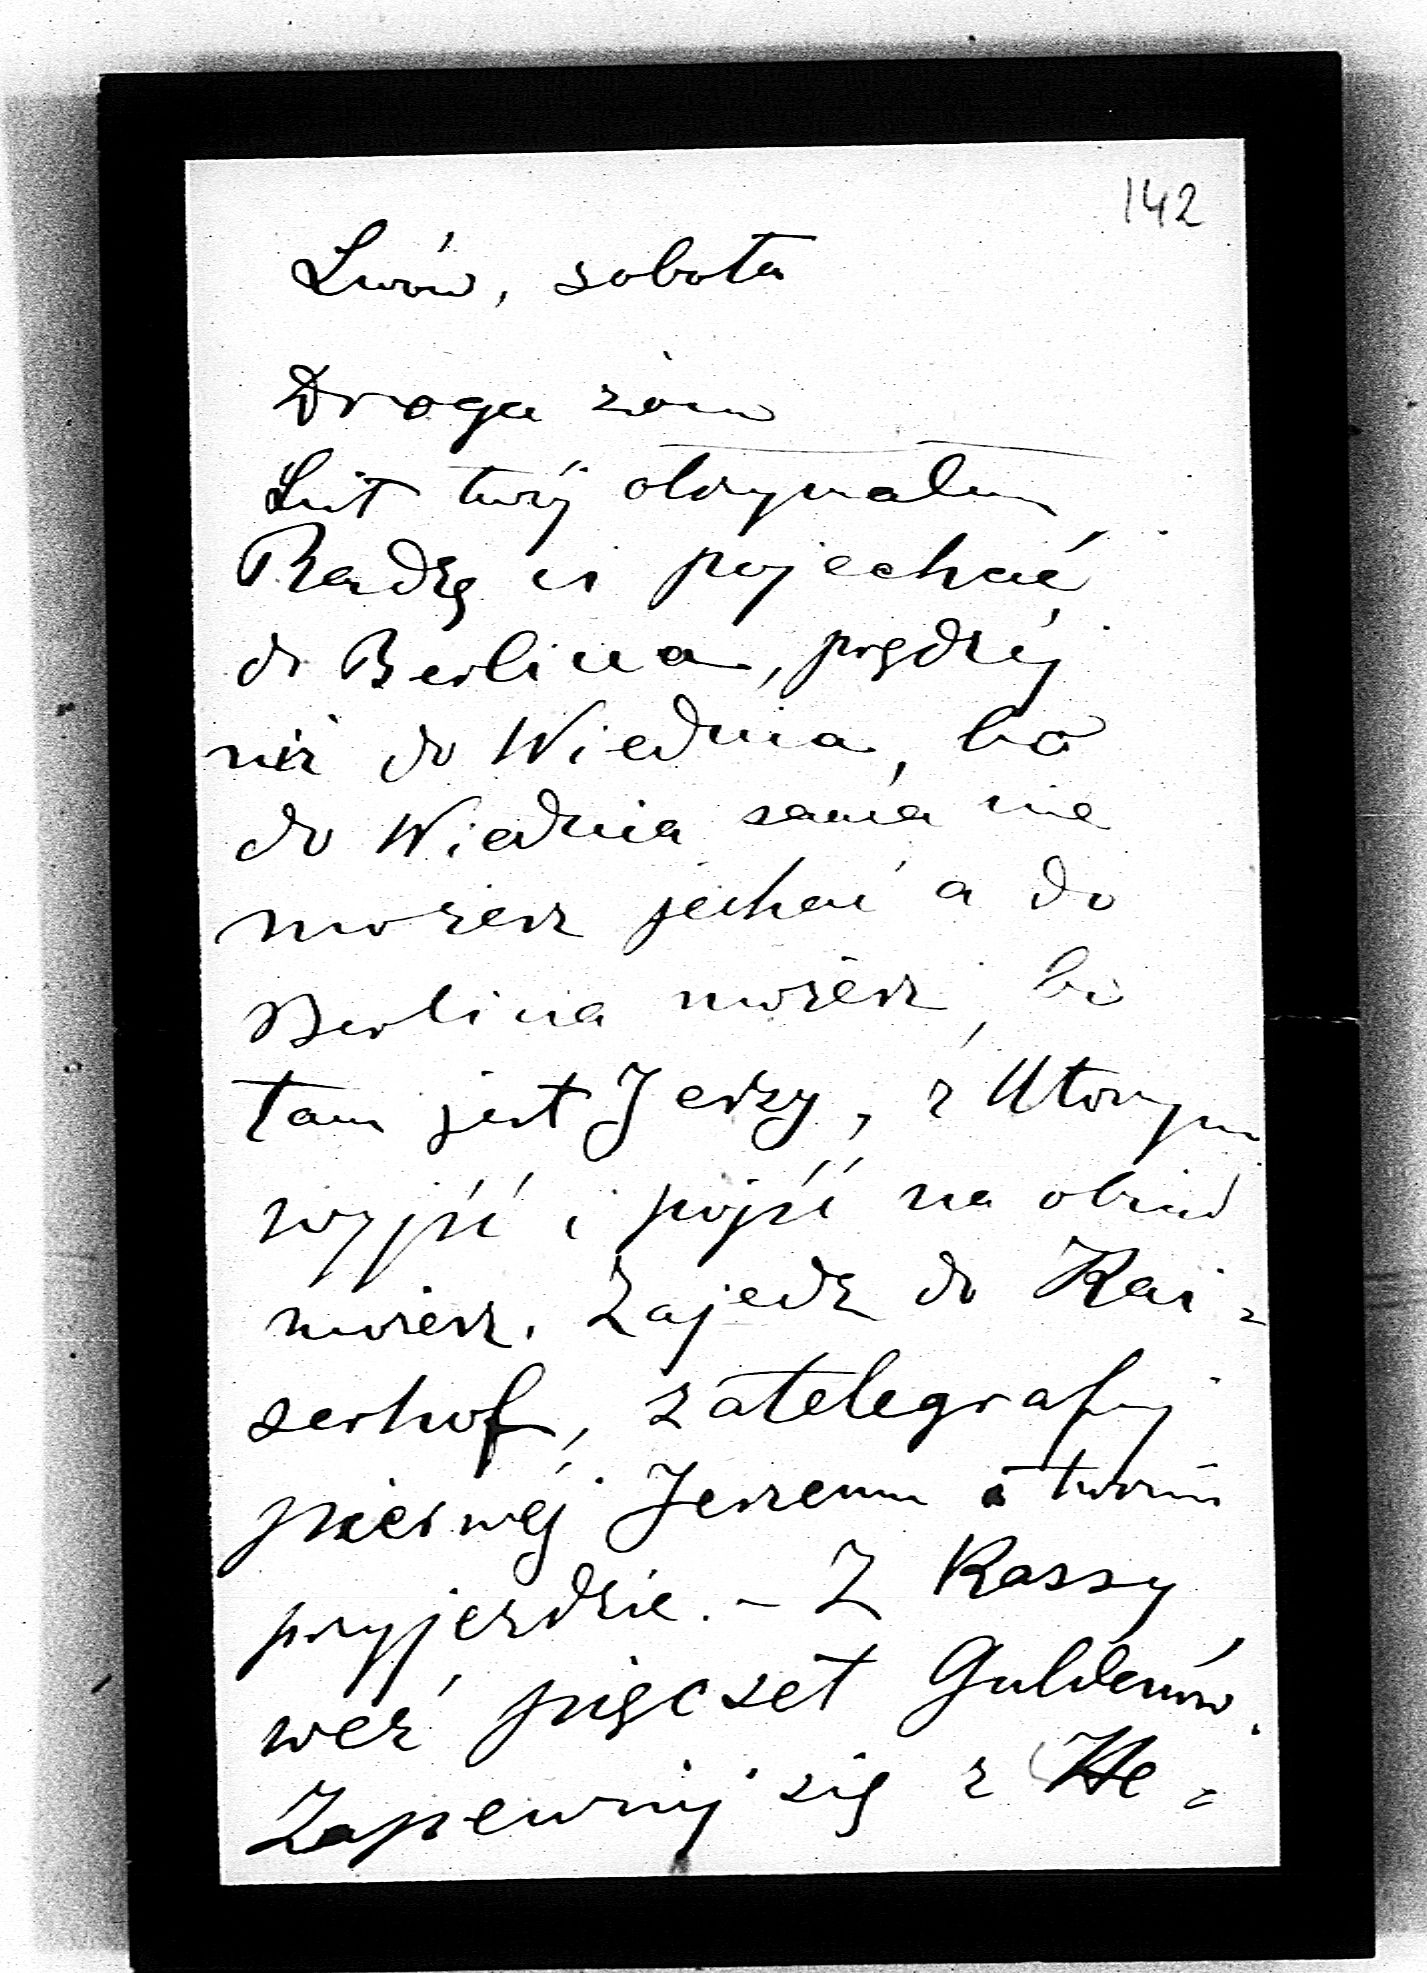 142
Lwów, sobota
Droga żono
List twój otrzymałem.
Radzę ci pojechać
do Berlina, prędzéj
niż do Wiednia, bo
do Wiednia sama nie
możesz jechać a do
Berlina możesz, bo
tam jest Jerzy, z którym
wyjść i pójść na obiad
możesz. Zajedź do Kai-
serhof, zatelegrafuj
pierwéj Jerzemu o twoim
przyjeździe. – Z Kassy
weź pięćset Guldenów.
Zapewnij się z He=